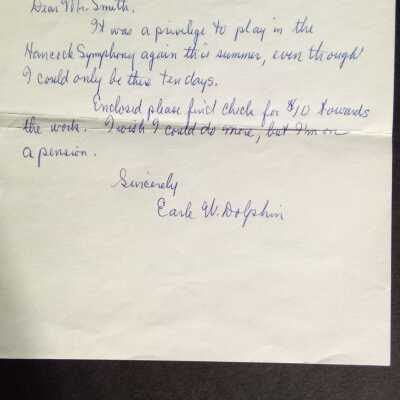 Dear Mr. Smith.
It was a privilege to play in the
Hancock Symphony again this summer, even though
I could only be there ten days.
Enclosed please find check for $10 towards
the work. I wish I could do more, but I'm on
a pension.
Sincerely
Earle W. Dolphin